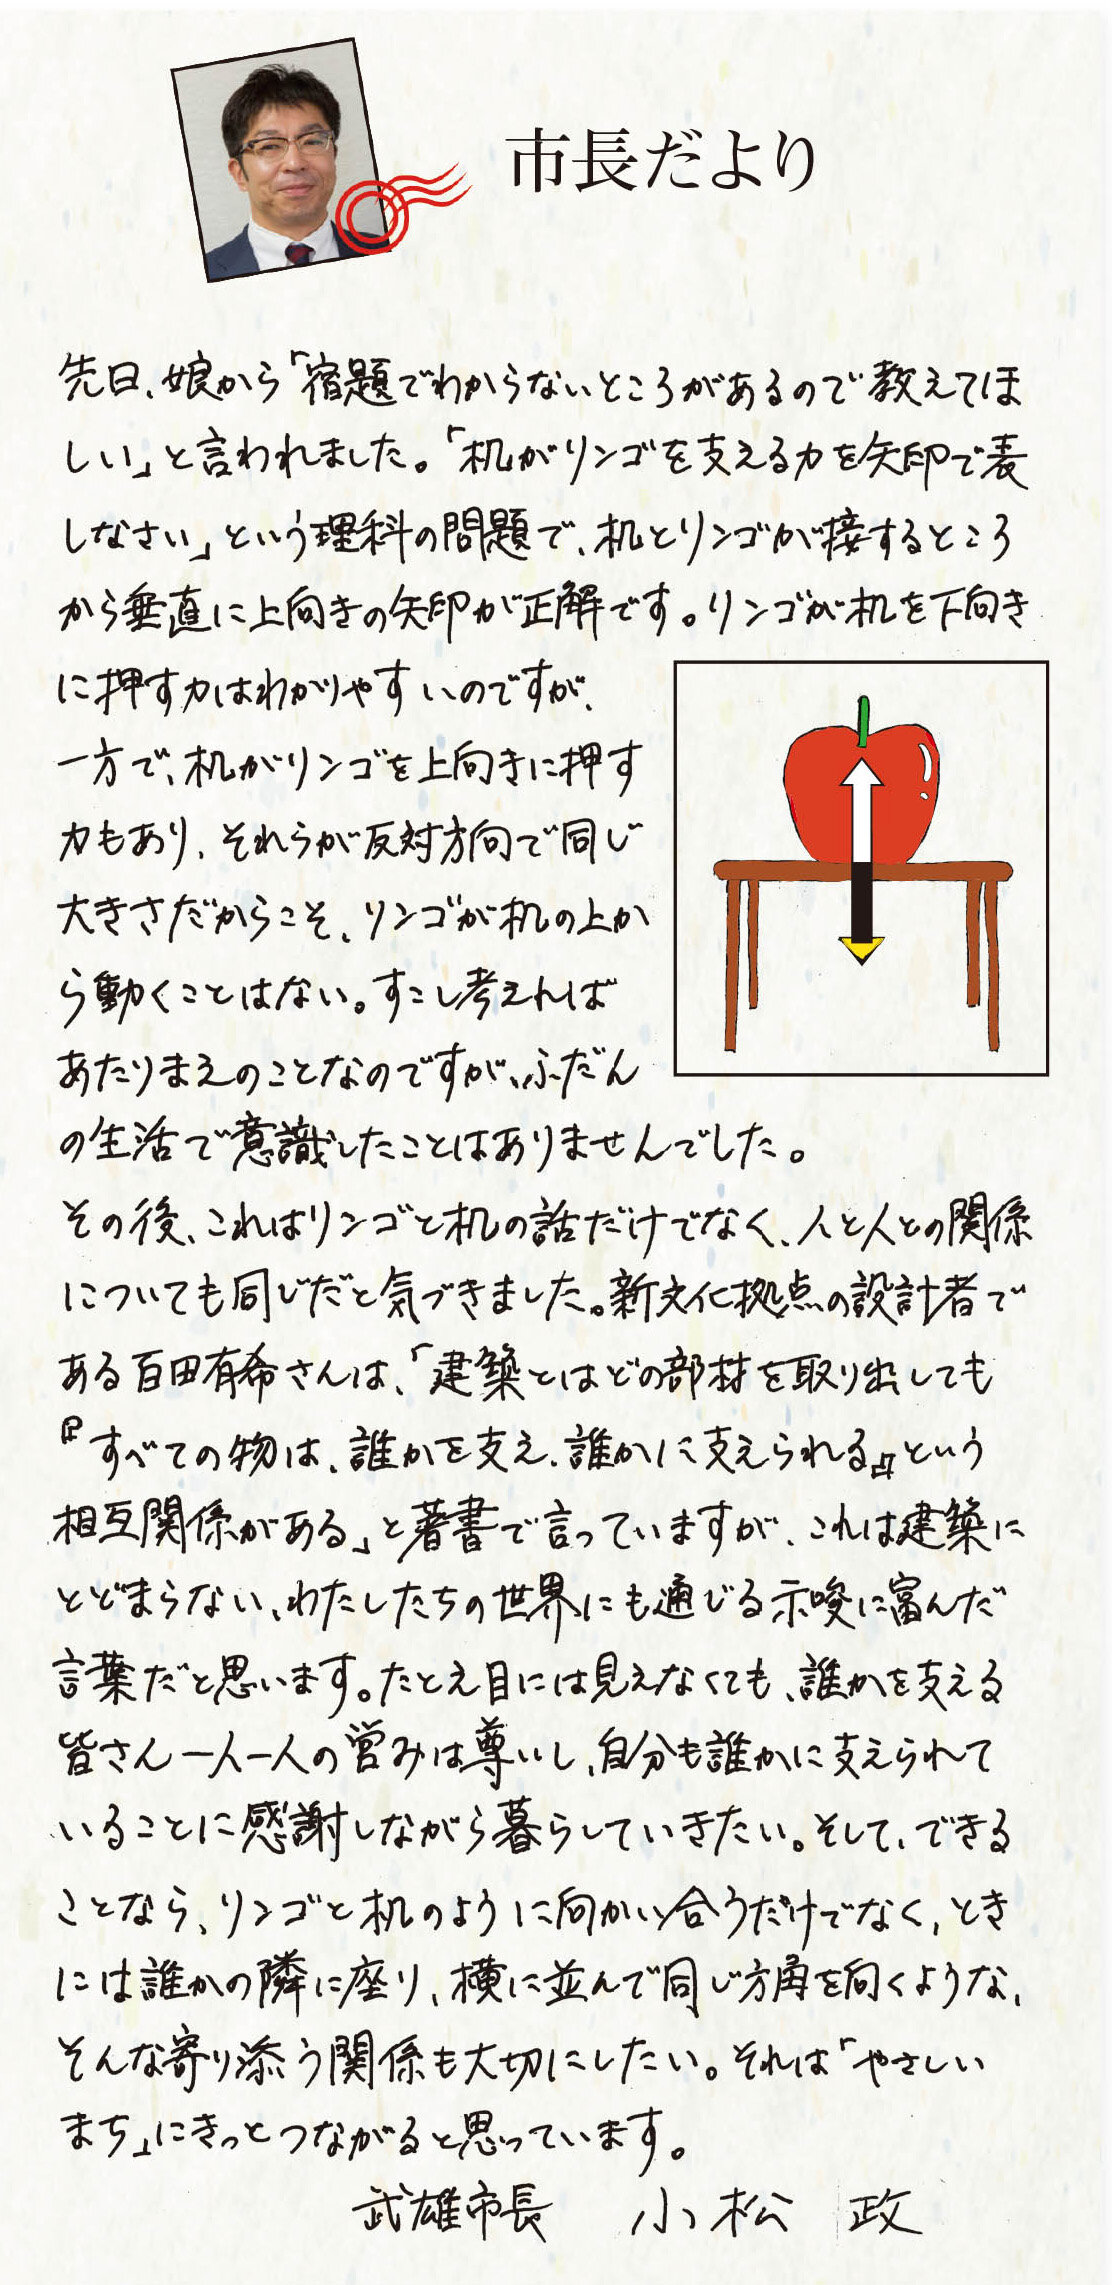 市長だより
先日、娘から「宿題でわからないところがあるので教えてほ
しい」と言われました。「机がリンゴを支える力を矢印で表
しなさい」という理科の問題で、机とリンゴが接するところ
から垂直に上向きの矢印が正解です。リンゴが机を下向き
に押す力はわかりやすいのですが、
一方で、机がリンゴを上向きに押す
力もあり、それらが反対方向で同じ
大きさだからこそ、リンゴが机の上か
ら動くことはない。すこし考えれば
あたりまえのことなのですが、ふだん
の生活で意識したことはありませんでした。
その後、これはリンゴと机の話だけでなく、人と人との関係
についても同じだと気づきました。新文化拠点の設計者で
ある百田有希さんは、「建築とはどの部材を取り出しても
『すべての物は、誰かを支え、誰かに支えられる』という
相互関係がある」と著書で言っていますが、これは建築に
とどまらない、わたしたちの世界にも通じる示唆に富んだ
言葉だと思います。たとえ目には見えなくても、誰かを支える
皆さん一人一人の営みは尊いし、自分も誰かに支えられて
いることに感謝しながら暮らしていきたい。そして、できる
ことなら、リンゴと机のように向かい合うだけでなく、とき
には誰かの隣に座り、横に並んで同じ方角を向くような、
そんな寄り添う関係も大切にしたい。それは「やさしい
まち」にきっとつながると思っています。
武雄市長 小松 政